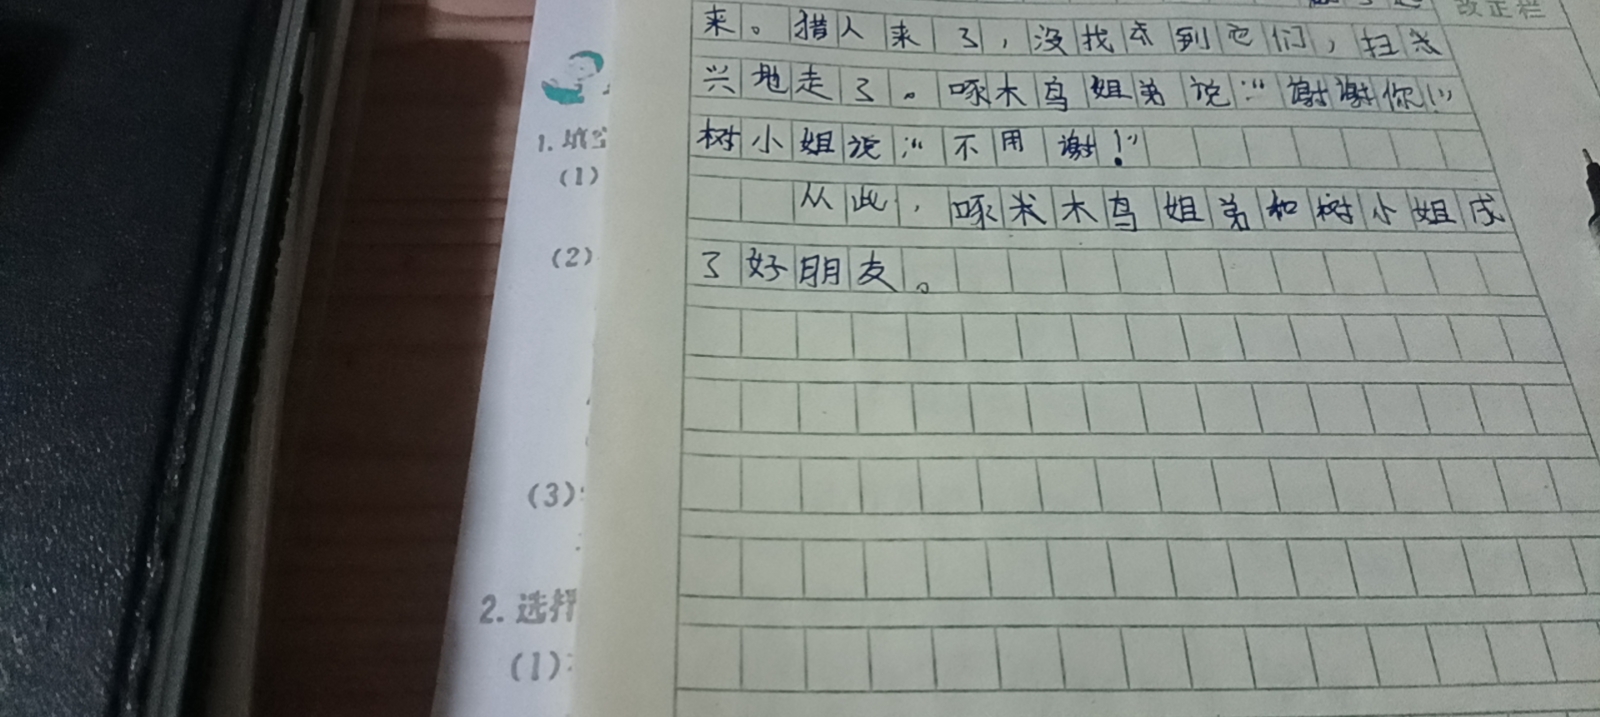 改正栏
来。猎人来了，没找到它们，扫
兴地走了。啄木鸟姐弟说：“谢谢你！”
树小姐说：“不用谢！”
从此，啄米木鸟姐弟和树小姐成
了好朋友。
1. 填
(1)
(2)
(3)
2. 选择
(1)